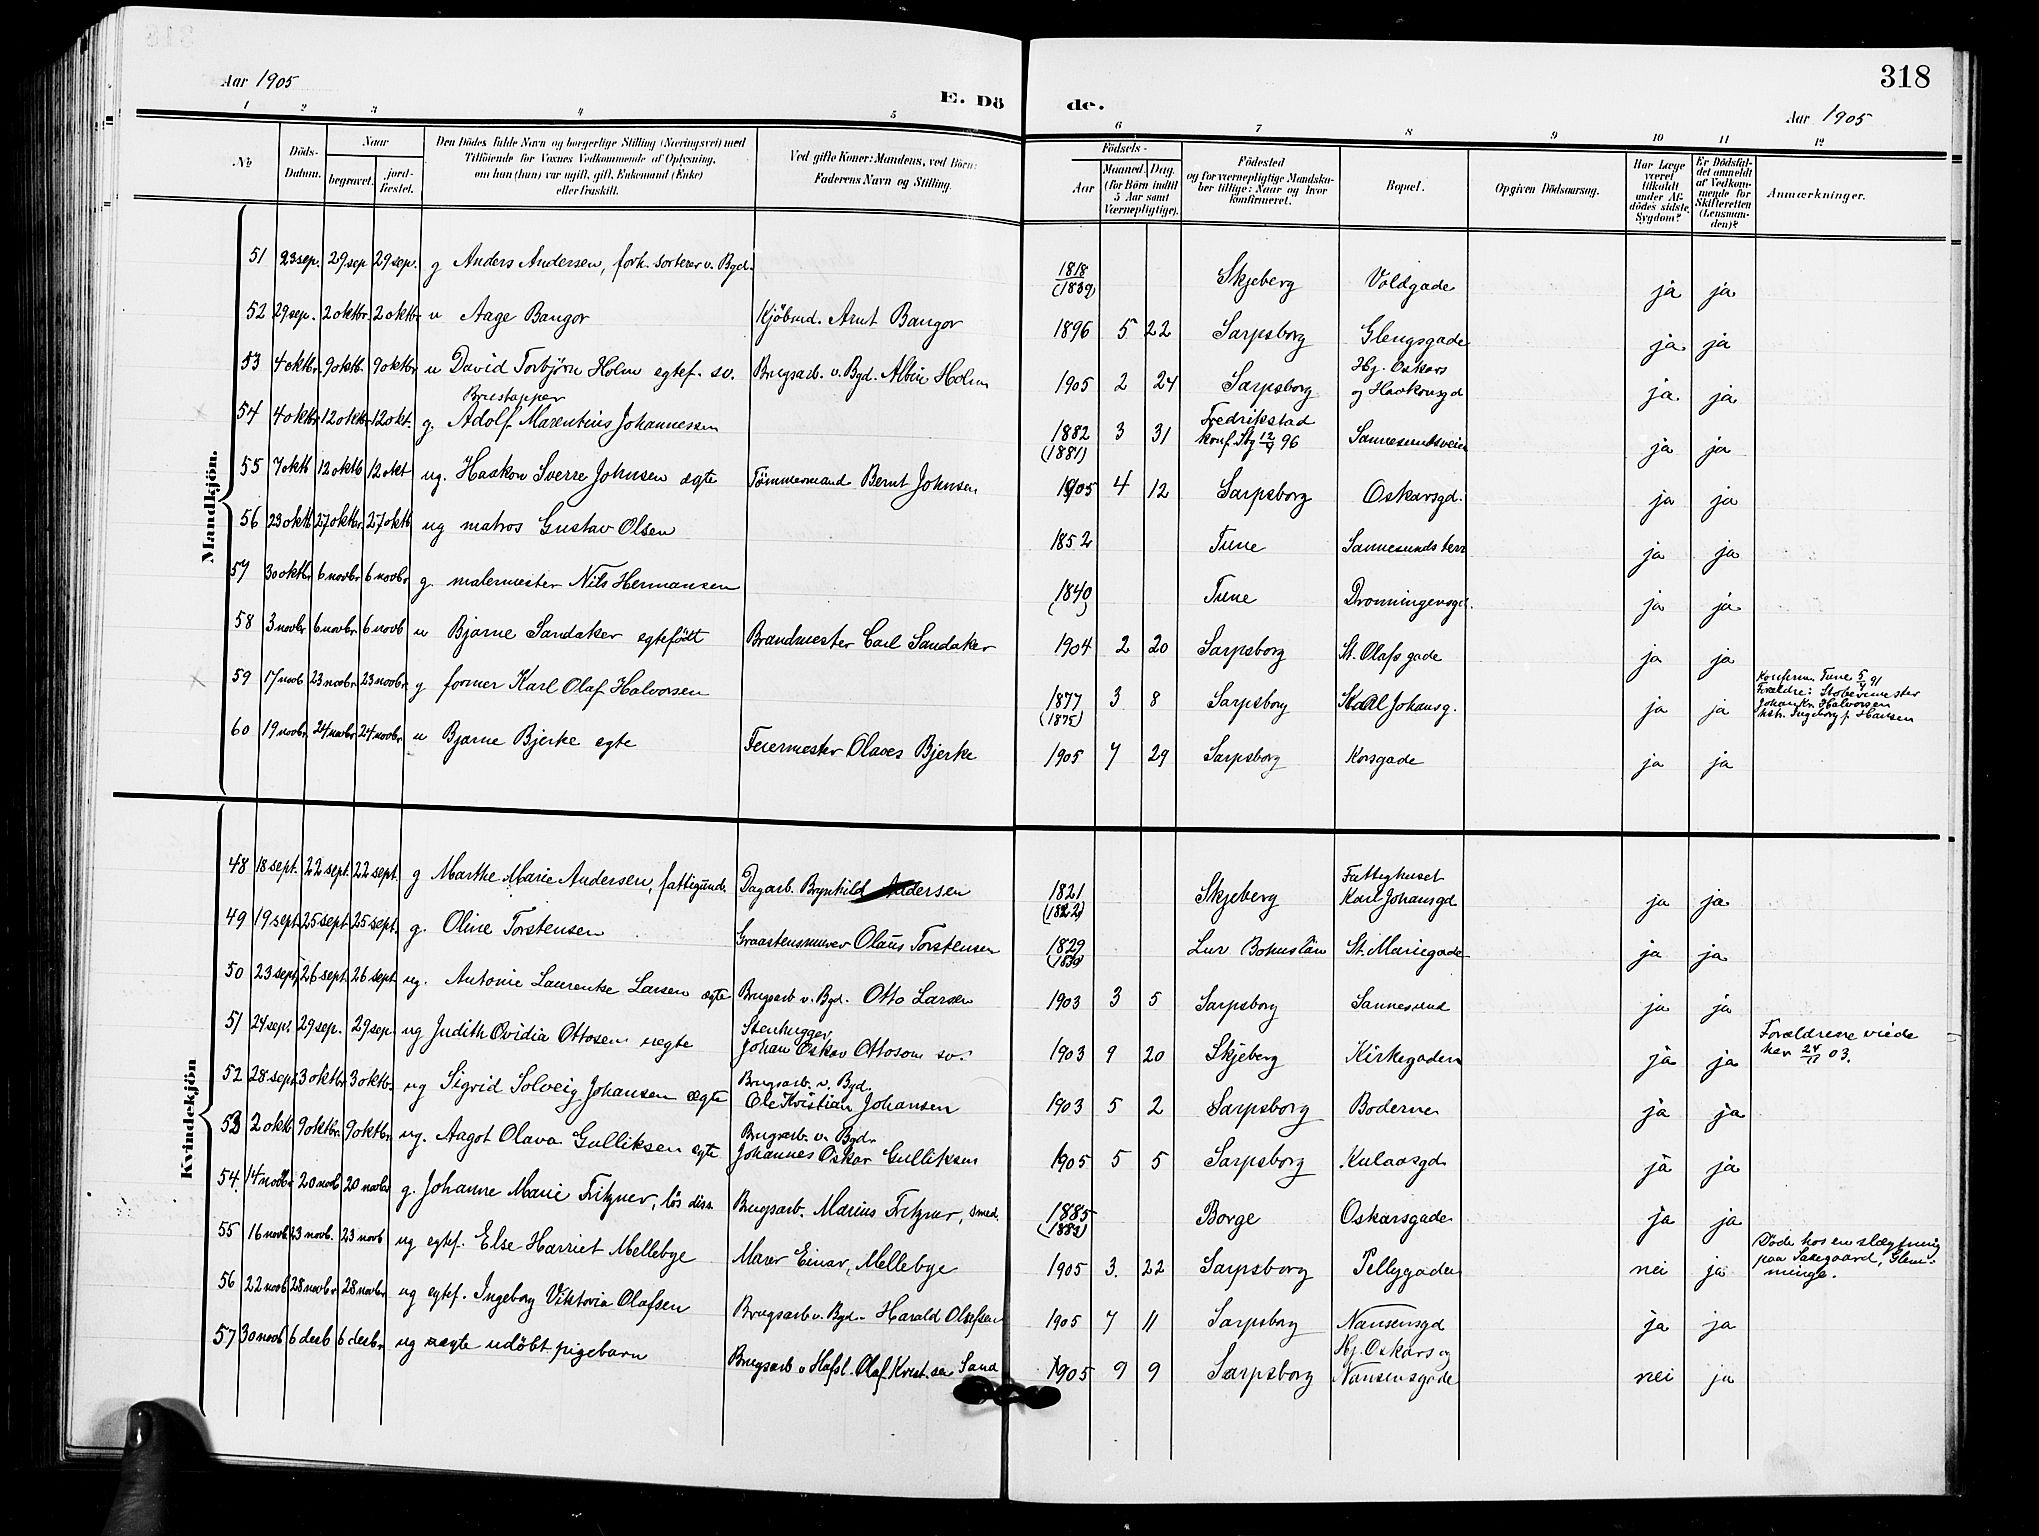 318
Aar 1905
E. Dö de.
Aar 1905
1 2 3 4 5 6 7 8 9 10 11 12
No
Döds-Datum.
Naar
begravet.
jordfæstet.
Den Dödes fulde Navn og borgerlige Stilling (Næringsvei) med
Tilföiende for Voxnes Vedkommende af Oplysning,
om han (hun) var ugift, gift, Enkemand (Enke)
eller fraskilt.
Ved gifte Koner: Mandens, ved Börn:
Faderens Navn og Stilling.
Födsels-
Aar
Maaned. Dag.
(for Börn indtil
5 Aar samt
Værnepligtige).
Födested
og for værnepligtige Mandska-
ber tillige: Naar og hvor
konfirmeret.
Bopæl.
Opgiven Dödsaarsag.
Har Læge
været
tilkaldt
under Af-
dödes sidste
Sygdom?
Er Dödsfal-
det anmeldt
af Vedkom-
mende for
Skifteretten
(Lensman-
den)?
Anmærkninger.
Mandkjön.
51 23 sep. 29 sep 29 sep. g Anders Andersen, forh. sorterer v. Byd. 1818 (1839) Skjeberg Voldgade ja ja
52 29 sep. 2 oktbr. 2 oktbr. u Aage Bangor Kjöbmd. Arnt Bangor 1896 5 22 Sarpsborg Glengsgade ja ja
53 4 oktbr. 9 oktb. 9 oktbr u David Torbjörn Holm egtef. sv. Brugsarb. v. Byd. Albin Holm 1905 2 24 Sarpsborg Hj. Oskars og Haakonsgd ja ja
54 4 oktbr 12 oktbr 12 okt. g. Brustapper Adolf Marentius Johannessen 1882 (1881) 3 31 Fredrikstad konf. Sbg 12/4 96 Sannesundsveien ja ja
55 7 oktb 12 oktb 12 okt ug. Haakon Sverre Johnsen ægte Tömmermand Bernt Johnsen 1905 4 12 Sarpsborg Oskarsgd. ja ja
56 23 oktb 27 oktbr. 27 oktb ug matros Gustav Olsen 1852 Tune Sannesunds terr ja ja
57 30 oktbr 6 novbr 6 novbr g. malermester Nils Hermansen 1840 ( ) Tune Dronningensgd. ja ja
58 3 novbr 6 novbr. 6 novb u Bjarne Sandaker egtefödt Brandmester Carl Sandaker 1904 2 20 Sarpsborg St. Olafs gade ja ja
59 17 novb 23 novbr. 23 novbr. g former Karl Olaf Halvorsen 1877 (1875) 3 8 Sarpsborg Karl Johansg. ja ja
Konfirm. Tune 5/4 91
Forældre: Stobermester
Johan Kr. Halvorsen
hstr. Ingeborg f. Hansen
60 19 novbr. 24 novbr. 24 novbr. u Bjarne Bjerke egte Feiermester Olaves Bjerke 1905 7 29 Sarpsborg Korsgade ja ja
Kvindekjön
48 18 sept. 22 sept. 22 sept. g Marthe Marie Andersen, fattigund. Dagarb. Brynhild Andersen 1821 (1822) Skjeberg Fattighuset Karl Johansgd ja ja
49 19 sept. 25 sept. 25 sept. g. Oline Torstensen Graastensmurer Olaus Torstensen 1829 (1830) Lur Bohuslän St. Mariegade ja ja
50 23 sept. 26 sept. 26 sept. ug. Antonie Laurentse Larsen ægte Brugsarb v. Byd. Otto Larsen 1903 3 5 Sarpsborg Sannesund ja ja
51 24 sept. 29 sep. 29 sep. ug Judith Ovidia Ottosen uegte Stenhugger Johan Oskar Ottoson sv. 1903 9 20 Skjeberg Kirkegaden ja ja
Forældrene viede
her 24/11 03.
52 28 sept 3 oktbr 3 oktbr. ug Sigrid Solveig Johansen ægte Brugsarb. v. Byd. Ole Kristian Johansen 1903 5 2 Sarpsborg Boderne ja ja
53 2 oktb 9 oktbr. 9 oktbr ug. Aagot Olava Gulliksen egte Brugsarb. v. Byd. Johannes Oskar Gulliksen 1905 5 5 Sarpsborg Kulaasgd ja ja
54. 14 novbr 20 novb 20 novbr g. Johanne Marie Fritzner, lös diss. Brugsarb. Marius Fritzner, smed. 1885 (1883) Borge Oskarsgade ja ja
55 16 novb 23 novb. 23 novb ug egtef. Else Harriet Mellebye Murer Einar Mellebye 1905 3. 22 Sarpsborg Pellygaden nei ja
Döde hos en slægtning
paa Sakegaard, Glem-
minge.
56 22 novb 28 novbr 28 novbr. ug egtef. Ingeborg Viktoria Olafsen Brugsarb v. Byd. Harald Olafsen 1905 7 11 Sarpsborg Nansensgd ja ja
57 30 novb 6 desb 6 desbr ug uægte udöbt pigebarn Brugsarb v Hafsl. Olaf Krist.sen Sand 1905 9 9 Sarpsborg Hj. Oskars og Nansensgade nei ja